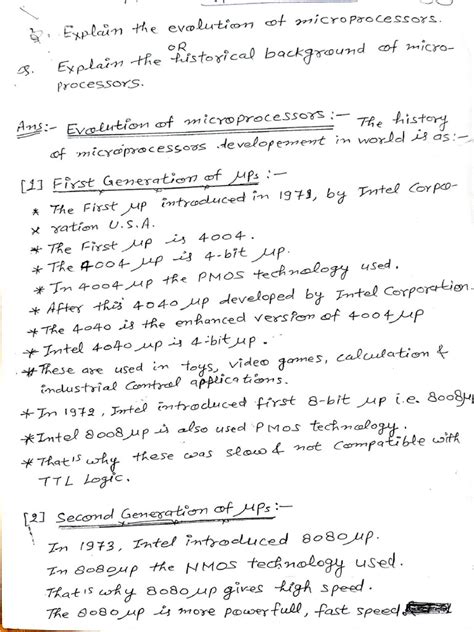 Q. Explain the evolution of microprocessors.
OR
Q. Explain the historical background of micro-
processors.
Ans:- Evolution of microprocessors :- The history
of microprocessors developement in world is as:-
[1] First Generation of μPs :-
* The First μp introduced in 1971, by Intel Corpo-
* ration U.S.A.
* The First μp is 4004.
* The 4004 μp is 4-bit μp.
* In 4004 μp the PMOS technology used.
* After this 4040 μp developed by Intel Corporation.
* The 4040 is the enhanced version of 4004 μp
* Intel 4040 μp is 4-bit μp.
* These are used in toys, video games, calculation &
industrial Control applications.
* In 1972, Intel introduced first 8-bit μp i.e. 8008 μp
* Intel 8008 μp is also used PMos technology.
* That's why these was slow & not Compatible with
TTL Logic.
[2] Second Generation of μPs :-
In 1973, Intel introduced 8080 μp.
In 8080 μp the NMOS technology used.
That's why 8080 μp gives high speed.
The 8080 μp is more powerfull, fast speed